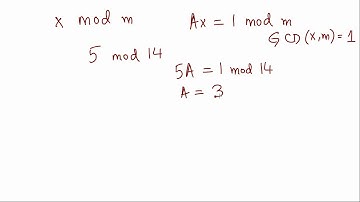 x mod m
Ax = 1 mod m
GCD(x,m) = 1
5 mod 14
5A = 1 mod 14
A = 3